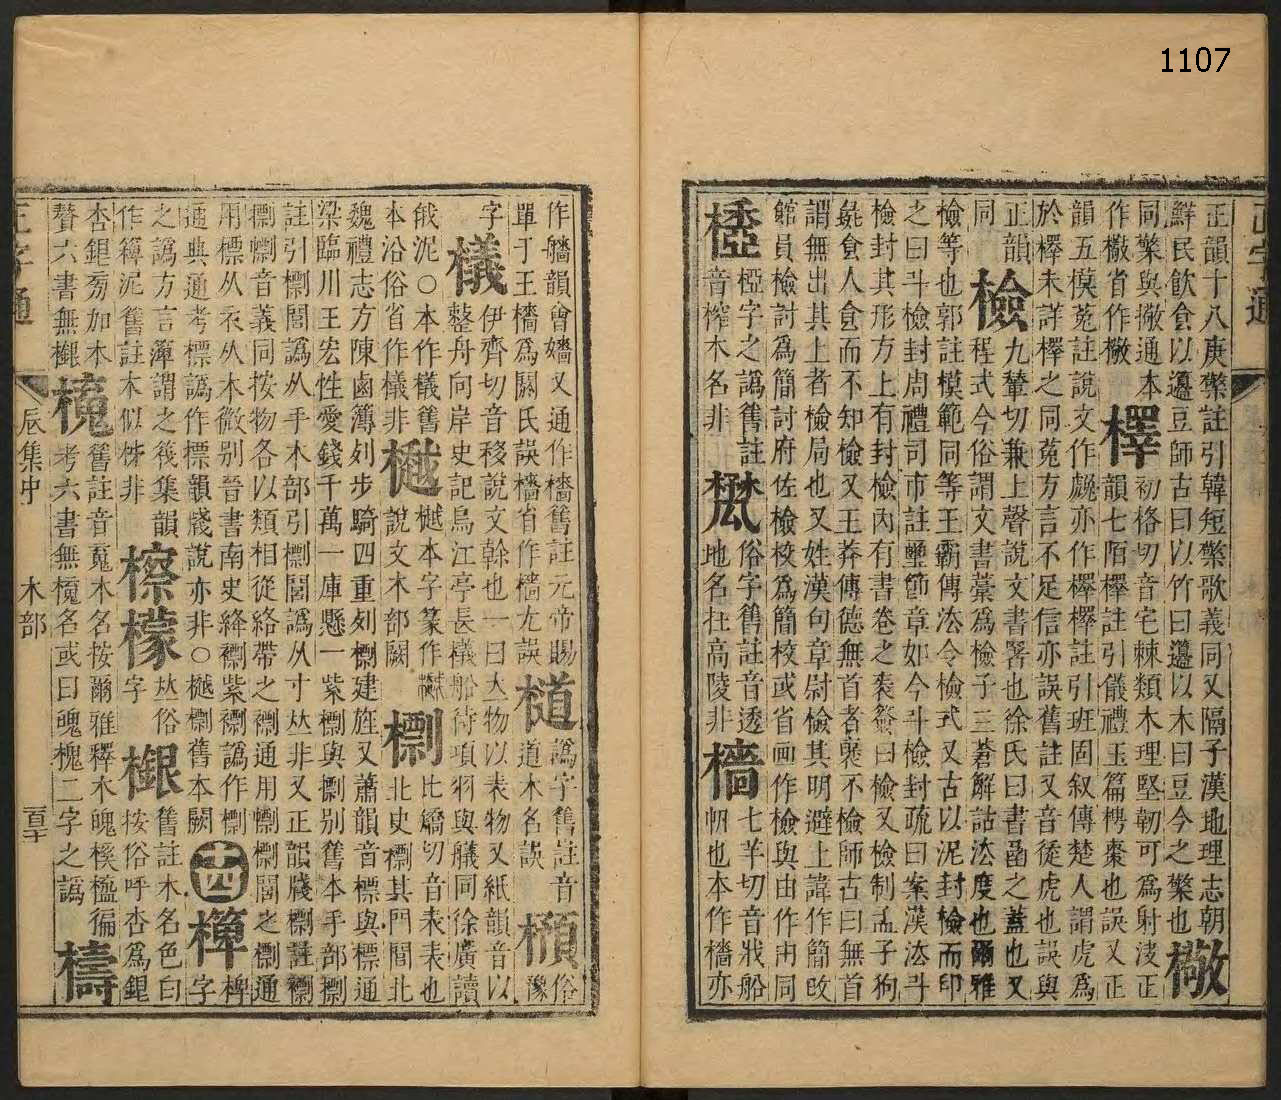 1107
正字通
正韻十八庚檠註引韓短檠歌義同又隔子漢地理志朝
鮮民飲食以籩豆師古曰以竹曰籩以木曰豆今之檠也 㯢
同檠與撇通本
作檄省作檄 檡 初格切音宅棘類木理堅韌可爲射決正
韻七陌檡註引儀禮玉篇梬棗也誤又正
韻五模菟註說文作䖘亦作檡檡註引班固叙傳楚人謂虎爲
於檡未詳檡之同菟方言不足信亦誤舊註又音徒虎也誤與
同 檢 九輦切兼上聲說文書署也徐氏曰書函之蓋也又
正韻程式今俗謂文書藁爲檢子三蒼解詁法度也爾雅
檢等也郭註模範同等王霸傳法令檢式又古以泥封檢而印
之曰斗檢封周禮司市註璽節章如今斗檢封疏曰案漢法斗
檢封其形方上有封檢內有書卷之表簽曰檢又檢制孟子狗
彘食人食而不知檢又王莽傳德無首者褎不檢師古曰無首
謂無出其上者檢局也又姓漢句章尉檢其明避上諱作簡改
館員檢討爲簡討府佐檢校爲簡校或省画作檢與由作甹同
椏字之譌舊註
音榨木名非
俗字舊註音透
地名在高陵非 檣 七羊切音戕船
帆也本作檣亦
作艢韻會嬙又通作檣舊註元帝賜
單于王檣爲閼氏誤檣省作樯尢誤 檤 譌字舊註音
道木名誤 俗
豫
字 檥 伊齊切音移說文榦也一曰大物以表物又紙韻音以
整舟向岸史記烏江亭長檥船待項羽與艤同徐廣讀
俄泥○本作檥舊
本沿俗省作檥非 樾本字篆作
說文木部闕 比矯切音表表也
北史㯹其門閭北
魏禮志方陳鹵簿列步騎四重列㯹建旌又蕭韻音標與標通
梁臨川王宏性愛錢千萬一庫懸一紫㯹與㯹别舊本手部㯹
註引㯹閭譌从手本部引㯹閭譌从寸𠀤非又正韻牋㯹註㯹
㯹㯹音義同按物各以類相從絡帶之㯹通用㯹㯹閭之㯹通
用標从衣从木微别晉書南史絳㯹紫㯹譌作㯹
通典通考標譌作標韻牋說亦非○樾㯹舊本闕 十四 椑字
之譌方言簿謂之筏集韻
作簿泥舊註木似柹非 檫檬 𠀤俗
字 檭 舊註木名色白
按俗呼杏爲銀
杏銀旁加本
贅六書無檭 舊註音嵬木名按爾雅釋木魄榽橀徧
考六書無櫆名或曰魄槐二字之譌 檮
正字通
辰集中
木部
百二十